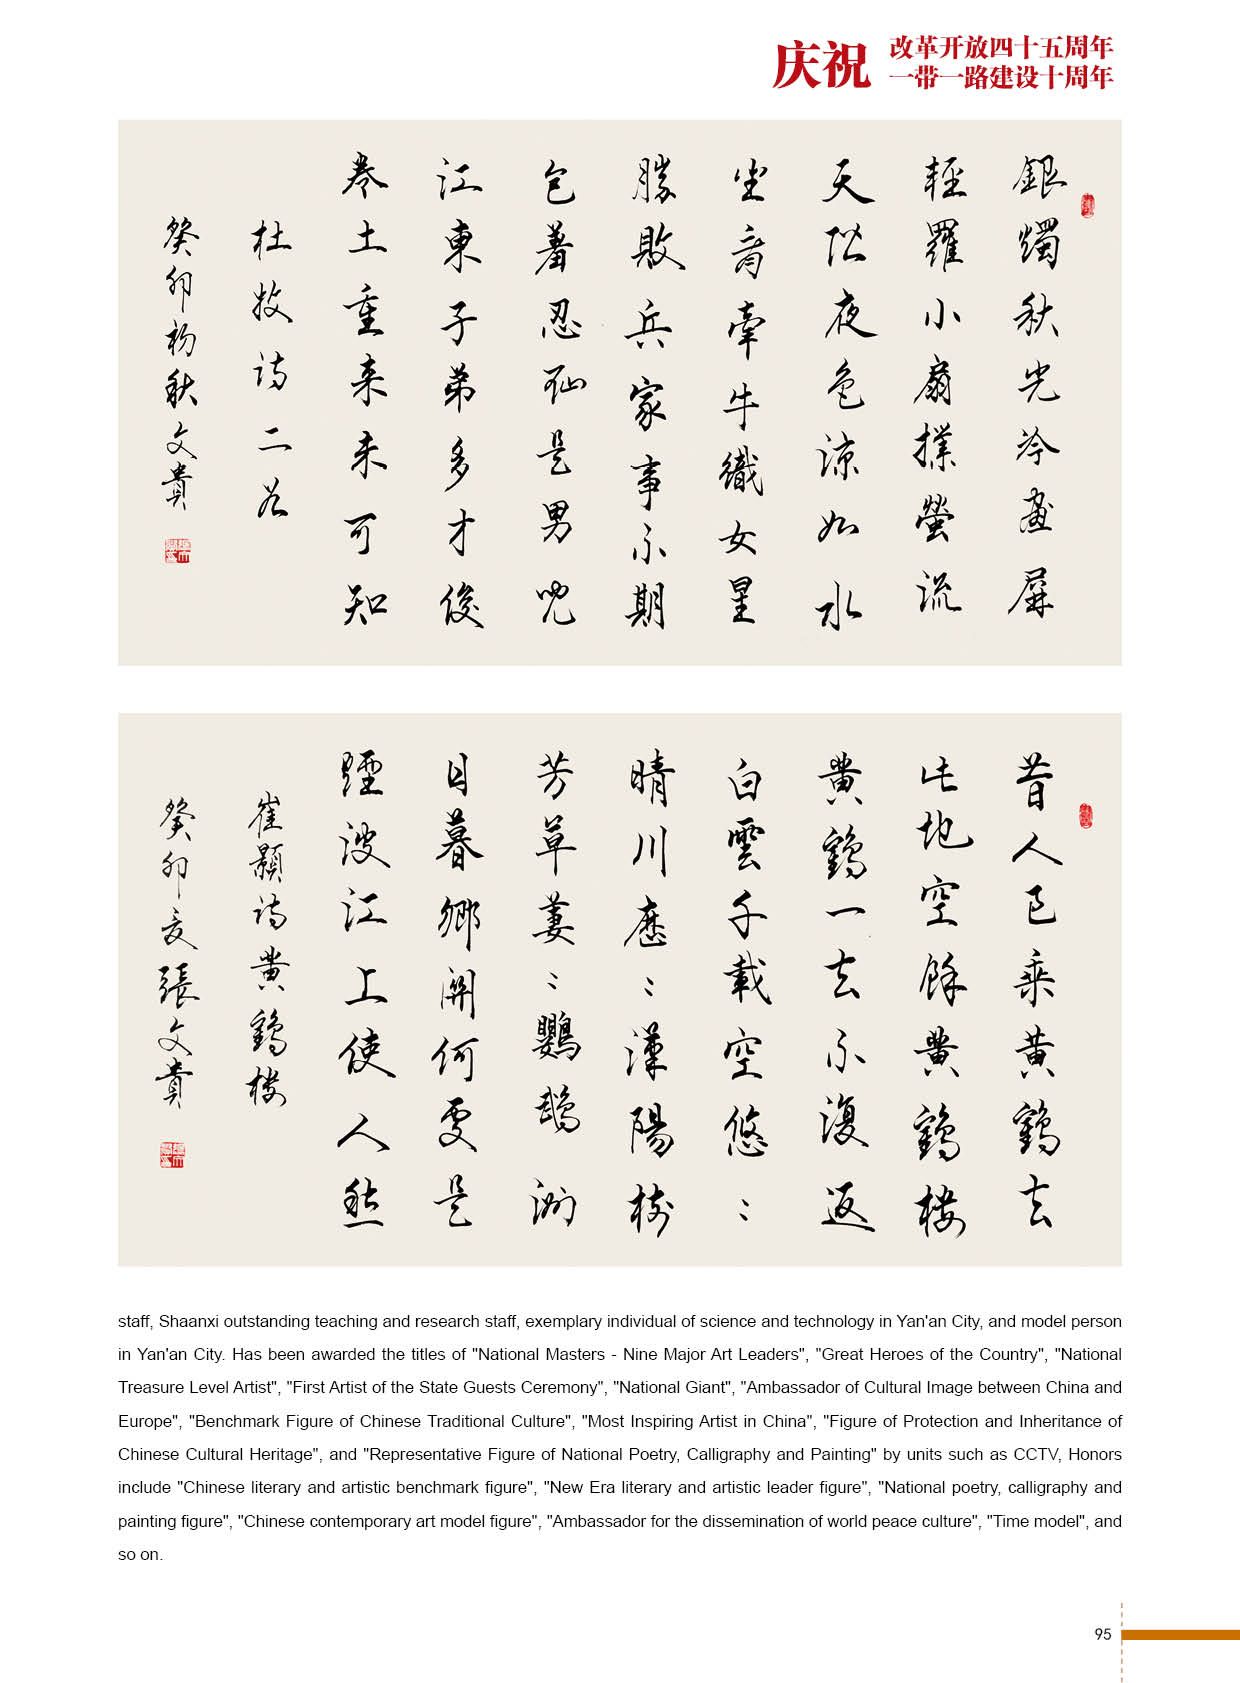 庆祝
改革开放四十五周年
一带一路建设十周年
銀燭秋光冷畫屏
輕羅小扇撲螢流
天階夜色涼如水
坐看牽牛織女星
勝敗兵家事不期
包羞忍恥是男兒
江東子弟多才俊
卷土重来未可知
杜牧诗二首
癸卯初秋文貴
昔人已乘黄鶴去
此地空餘黄鶴楼
黄鶴一去不復返
白雲千載空悠〻
晴川歷〻漢陽樹
芳草萋〻鸚鵡洲
日暮鄉關何處是
煙波江上使人愁
崔顥诗黄鶴楼
癸卯夏張文貴
staff, Shaanxi outstanding teaching and research staff, exemplary individual of science and technology in Yan'an City, and model person
in Yan'an City. Has been awarded the titles of "National Masters - Nine Major Art Leaders", "Great Heroes of the Country", "National
Treasure Level Artist", "First Artist of the State Guests Ceremony", "National Giant", "Ambassador of Cultural Image between China and
Europe", "Benchmark Figure of Chinese Traditional Culture", "Most Inspiring Artist in China", "Figure of Protection and Inheritance of
Chinese Cultural Heritage", and "Representative Figure of National Poetry, Calligraphy and Painting" by units such as CCTV, Honors
include "Chinese literary and artistic benchmark figure", "New Era literary and artistic leader figure", "National poetry, calligraphy and
painting figure", "Chinese contemporary art model figure", "Ambassador for the dissemination of world peace culture", "Time model", and
so on.
95